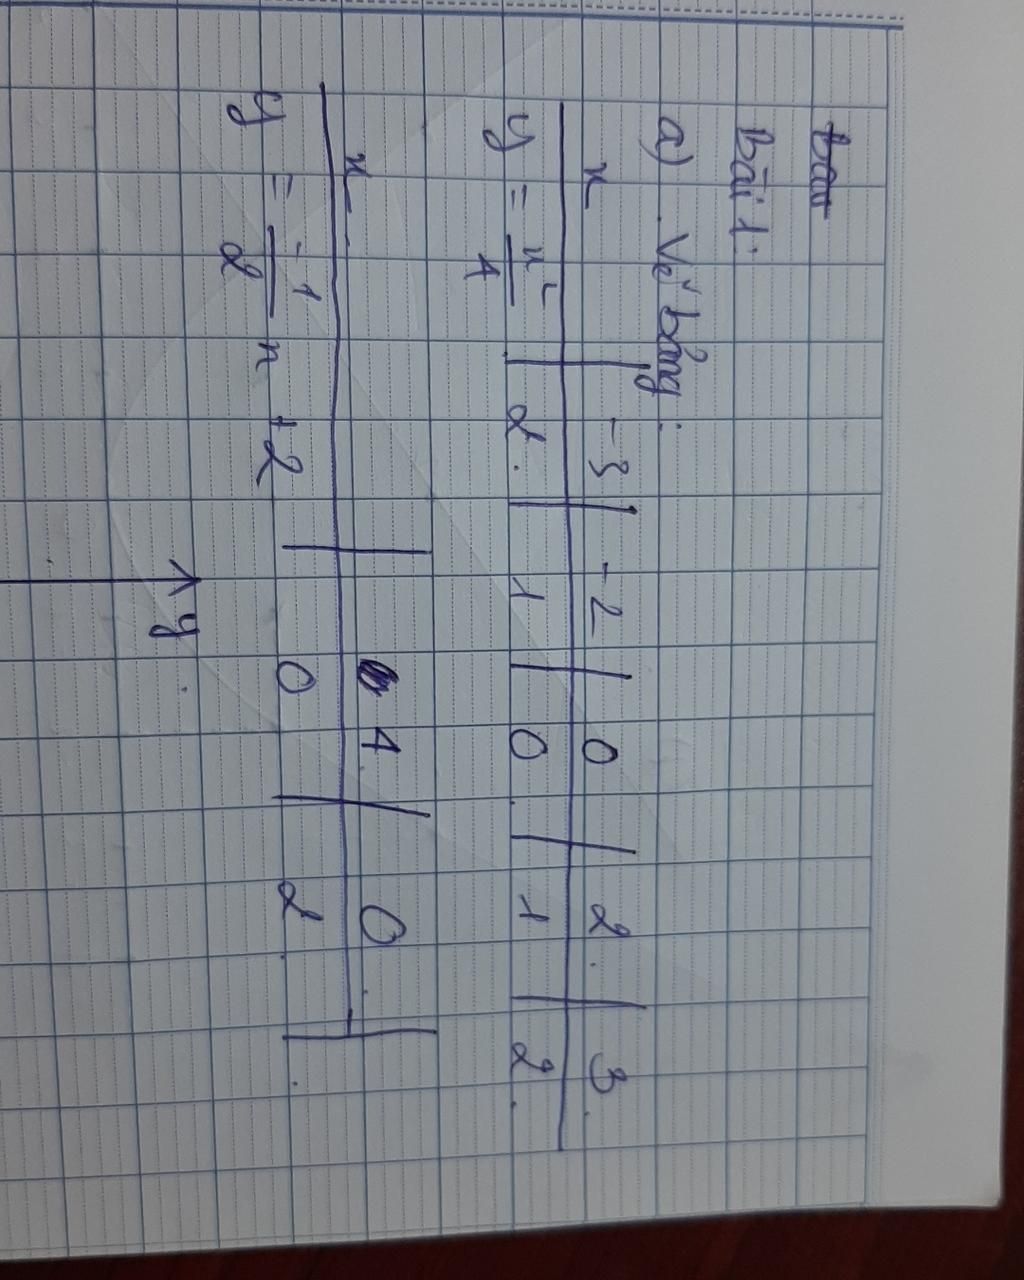 Bài 1:
a) Vẽ bảng:
x | -3 | -2 | 0 | 2 | 3
y = x²/4 | 2 | 1 | 0 | 1 | 2
x | 4 | 0
y = -1/2 x + 2 | 0 | 2
y